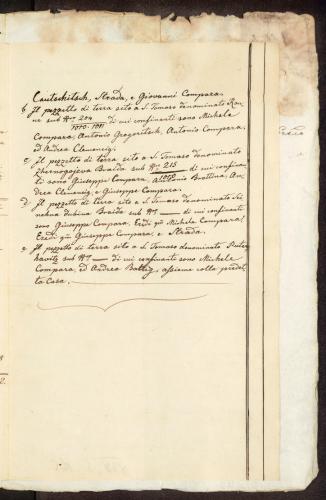 Cautschitsch, Strada, e Giovanni Compara.
b, Il pezzetto di terra sito a S. Tomaso denominato
sub Nro 204 / 1010-1011 di cui confinanti sono Michele
Compara, Antonio Gregoritsch, Antonio Compara,
ed Andrea Clemencig.
c, Il pezzetto di terra sito a S. Tomaso denominato
Zhernogojeva Braida sub Nro 215 / 1052 di cui confinan-
ti sono Giuseppe Compara, Antonio Bollina, An-
drea Clemencig, e Giuseppe Compara.
d, Il pezzetto di terra sito a S. Tomaso denominato Se-
nekna dubina Braida sub No — di cui confinanti
sono Giuseppe Compara, Eredi qm Michele Compara,
Eredi qm Giuseppe Compara, e Strada.
e, Il pezzetto di terra sito a S. Tomaso denominato
havitz sub No — di cui confinanti sono Michele
Compara, ed Andrea assieme colla predet-
ta Casa.